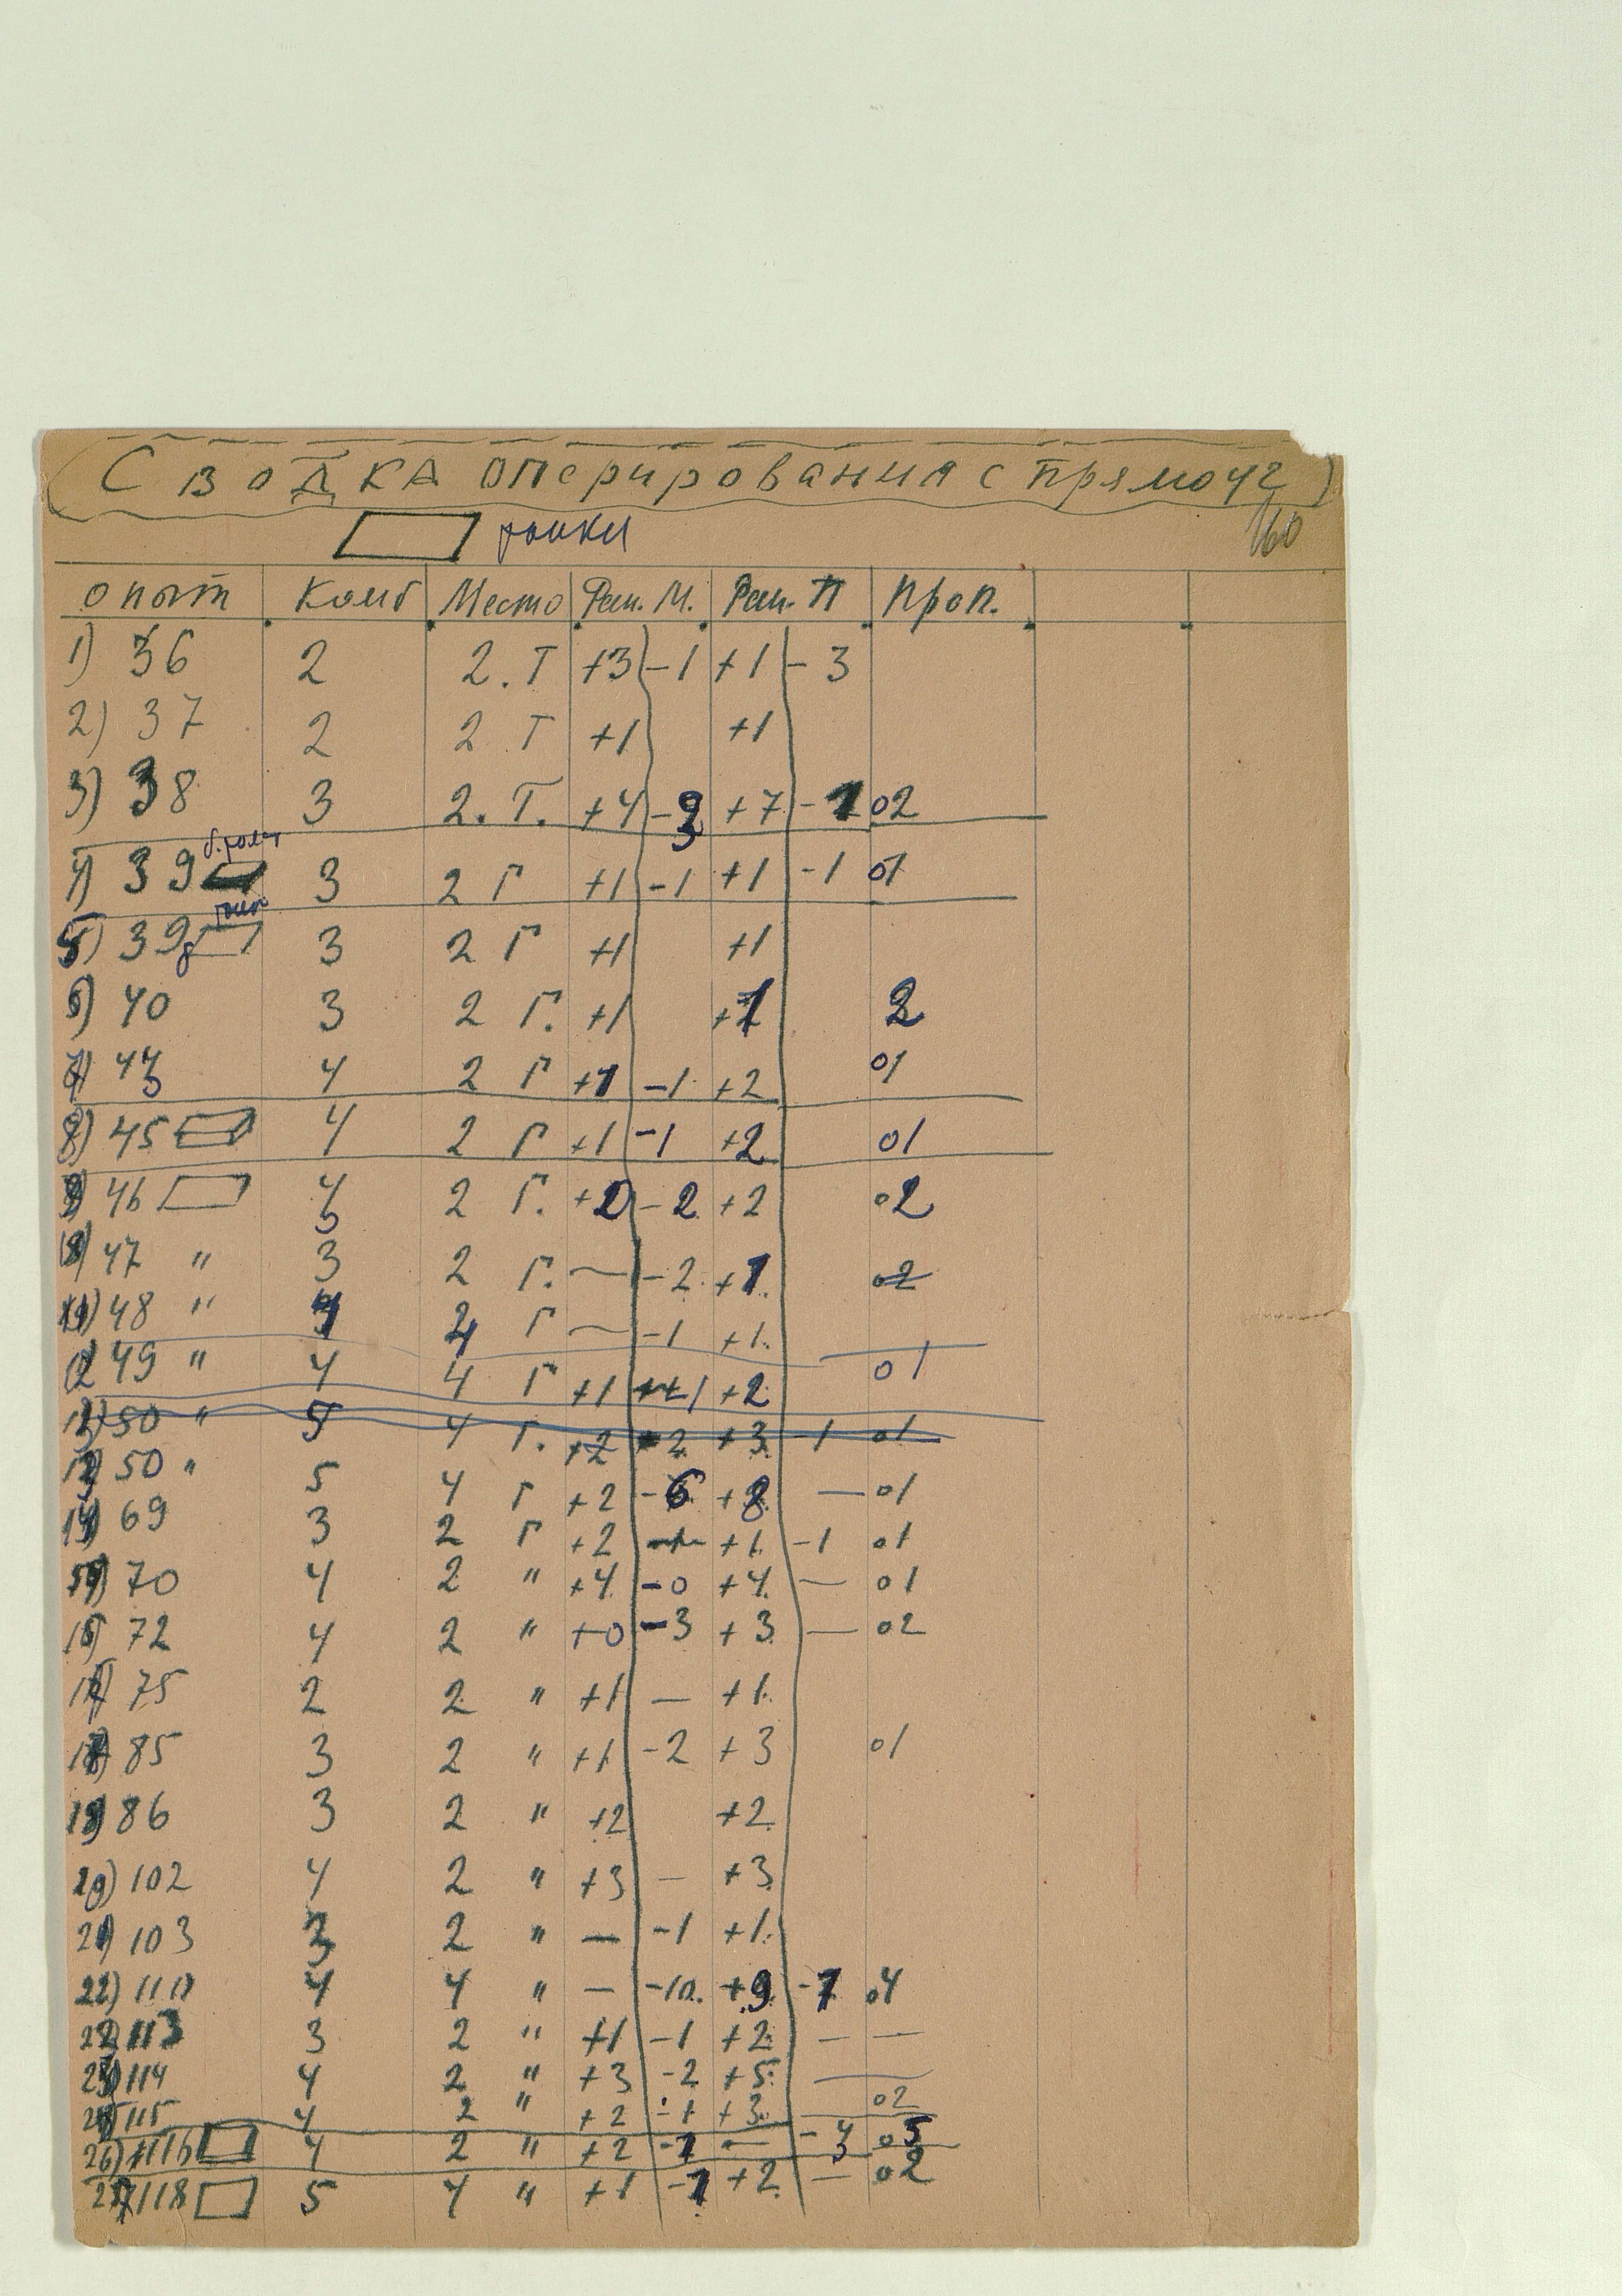 Сводка оперирования с прямоуг
рамки
160
опыт Комб Место Реш. М. Реш. П Проп.
1) 36 2 2. Т +3 -1 +1 -3
2) 37 2 2 Т +1 +1
3) 38 3 2. Т. +4 +7 -1 02
4) 39 3 2 Г +1 -1 +1 -1 01
5) 39б 3 2 Г +1 +1
6) 40 3 2 Г. +1 +1 2
7) 4 2 Г +1 -1 +2 01
8) 45 4 2 Г +1 -1 +2 01
9) 46 2 Г. -2 +2 02
47 " 3 2 Г. — -2 +1 02
48 " Г — -1 +1
12 49 " 4 4 Г +1 +2 01
50 " 5 4 Г. +2 2 +3 -1 01
50 " 5 4 Г +2 -6 +8 — 01
14) 69 3 2 Г +2 +1 -1 01
15) 70 4 2 " +4 -0 +4 — 01
16) 72 4 2 " +0 -3 +3 — 02
17) 75 2 2 " +1 — +1
18) 85 3 2 " +1 -2 +3 01
19) 86 3 2 " +2 +2
20) 102 4 2 " +3 — +3
21) 103 3 2 " — -1 +1
22) 4 4 " — -10 +9 -1 04
113 3 2 " +1 -1 +2 — —
114 4 2 " +3 -2 +5 —
115 4 2 " +2 -1 +3 — 02
26) 116 4 2 " +2 -1 — 05
118 5 4 " +1 -1 +2 — 02